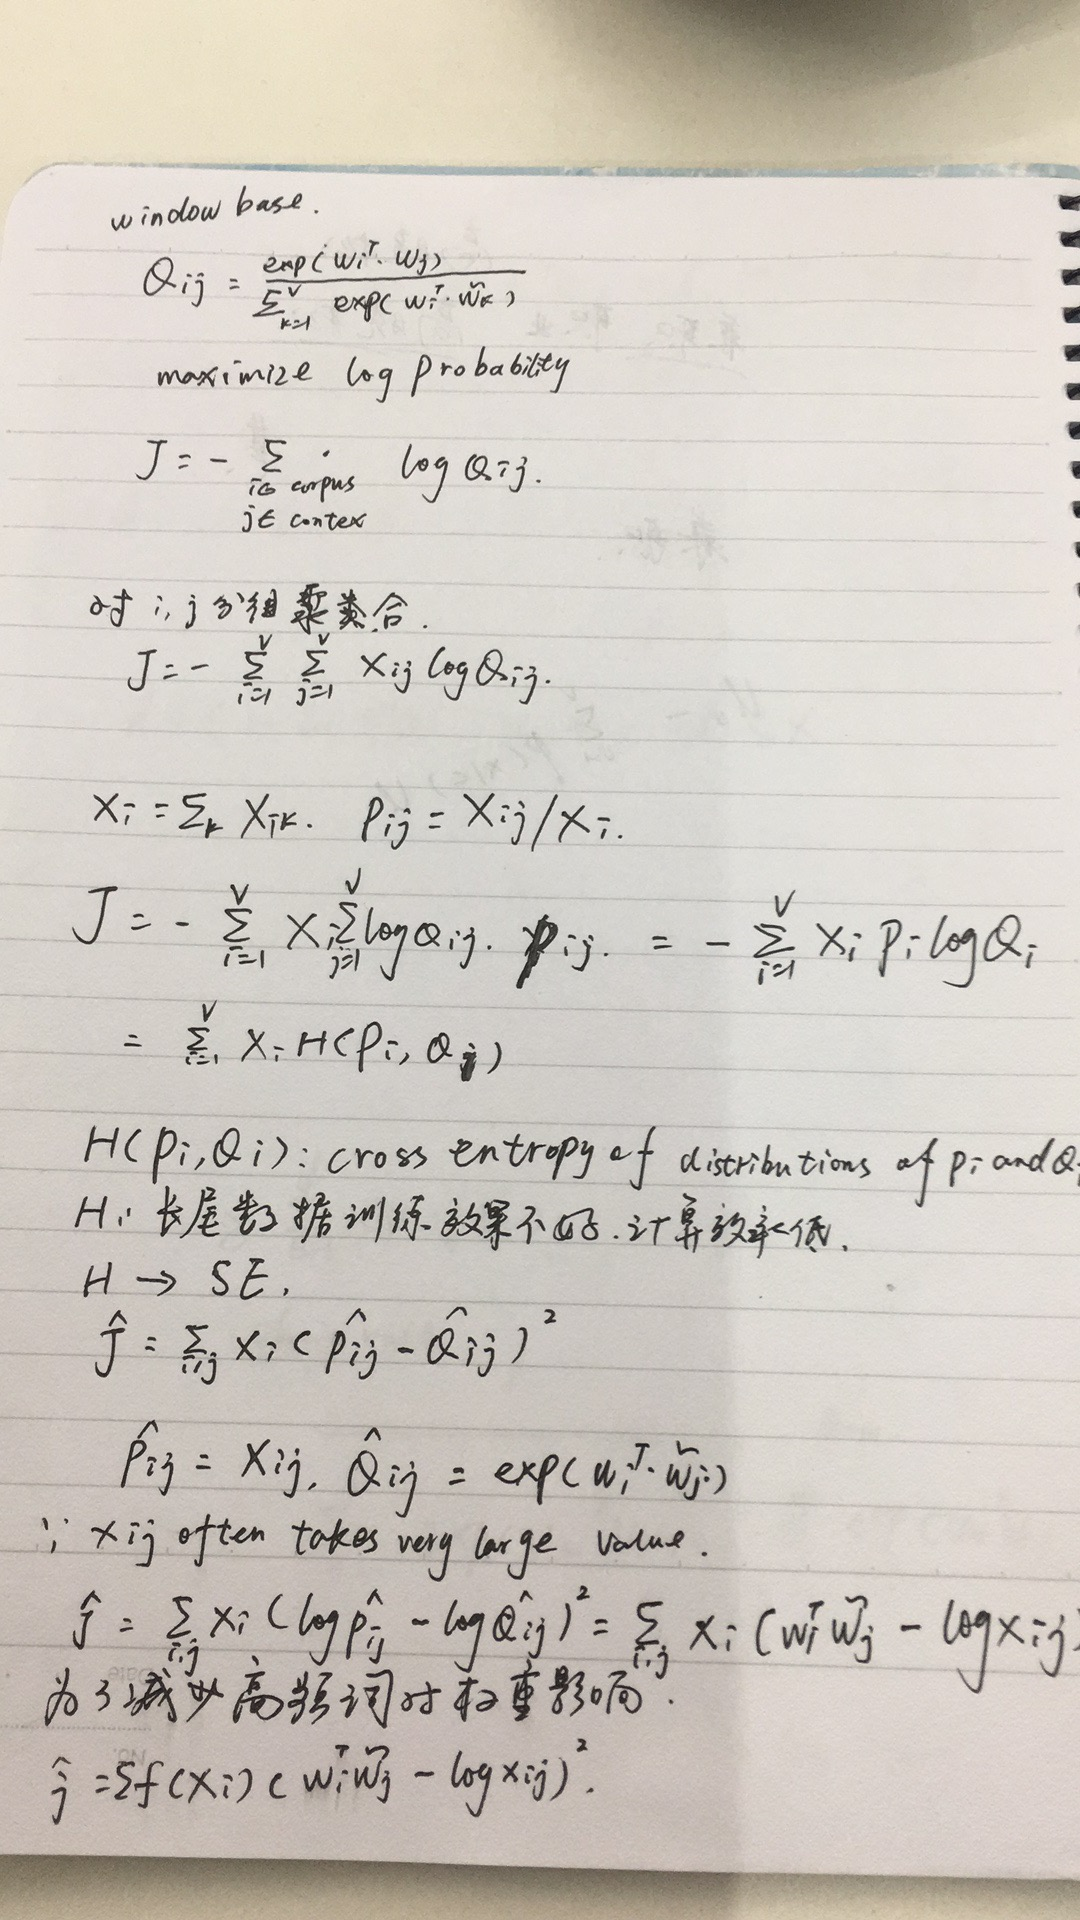 window base.
Qij = exp(wiᵀ·wj) / Σₖ₌₁ⱽ exp(wiᵀ·w̃k)
maximize log probability
J = - Σ log Qij.
i∈ corpus
j∈ contex
对 i, j 分组聚类合.
J = - Σᵢ₌₁ⱽ Σⱼ₌₁ⱽ Xij log Qij.
Xi = Σₖ Xik. Pij = Xij/Xi.
J = - Σᵢ₌₁ⱽ Xi Σⱼ₌₁ⱽ log Qij. Pij. = - Σᵢ₌₁ⱽ Xi Pi log Qi
= Σᵢ₌₁ⱽ Xi H(Pi, Qi)
H(Pi, Qi): cross entropy of distributions of Pi and Qi
H: 长尾数据训练效果不好. 计算效率低.
H → SE.
Ĵ = Σᵢ,ⱼ Xi (P̂ij - Q̂ij)²
P̂ij = Xij, Q̂ij = exp(wiᵀ·w̃j)
∵ Xij often takes very large value.
Ĵ = Σᵢ,ⱼ Xi (log P̂ij - log Q̂ij)² = Σᵢ,ⱼ Xi (wiᵀw̃j - log Xij)
为了减少高频词对权重影响.
Ĵ = Σ f(Xi) (wiᵀw̃j - log Xij)².